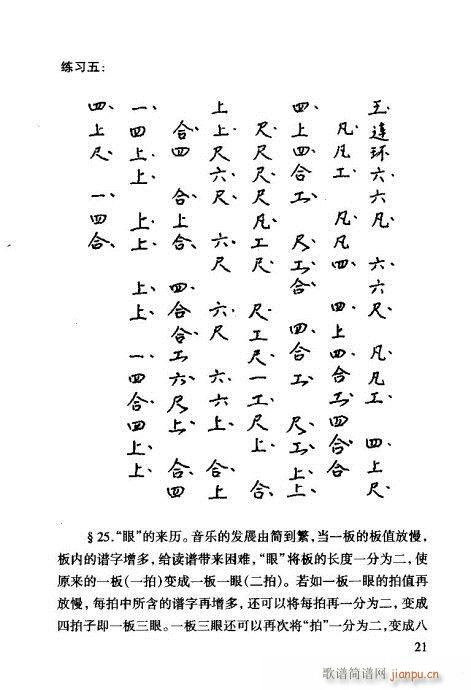 练习五:
玉連环六、六凡、六、六尺、凡、凡工、四、上尺、
凡、凡工、凡、凡四、四、上四、合工、四合合
四、上四、合工、尺、工、合四、合工、尺、工、合上、
尺、尺尺、尺凡、工尺、尺、工尺、一工、尺上、合、
上上、尺六、尺、六、尺六、尺六、六上、合、上
合、四合、上合、四、合合、工六、尺上、合、四
一、四上、上、上、上、上、上、一、四合、四上、上、
四、上尺、一、四合、
§25.“眼”的来历。音乐的发展由简到繁,当一板的板值放慢,
板内的谱字增多,给读谱带来困难,“眼”将板的长度一分为二,使
原来的一板(一拍)变成一板一眼(二拍)。若如一板一眼的拍值再
放慢,每拍中所含的谱字再增多,还可以将每拍再一分为二,变成
四拍子即一板三眼。一板三眼还可以再次将“拍”一分为二,变成八
21
歌谱简谱网
jianpu.cn